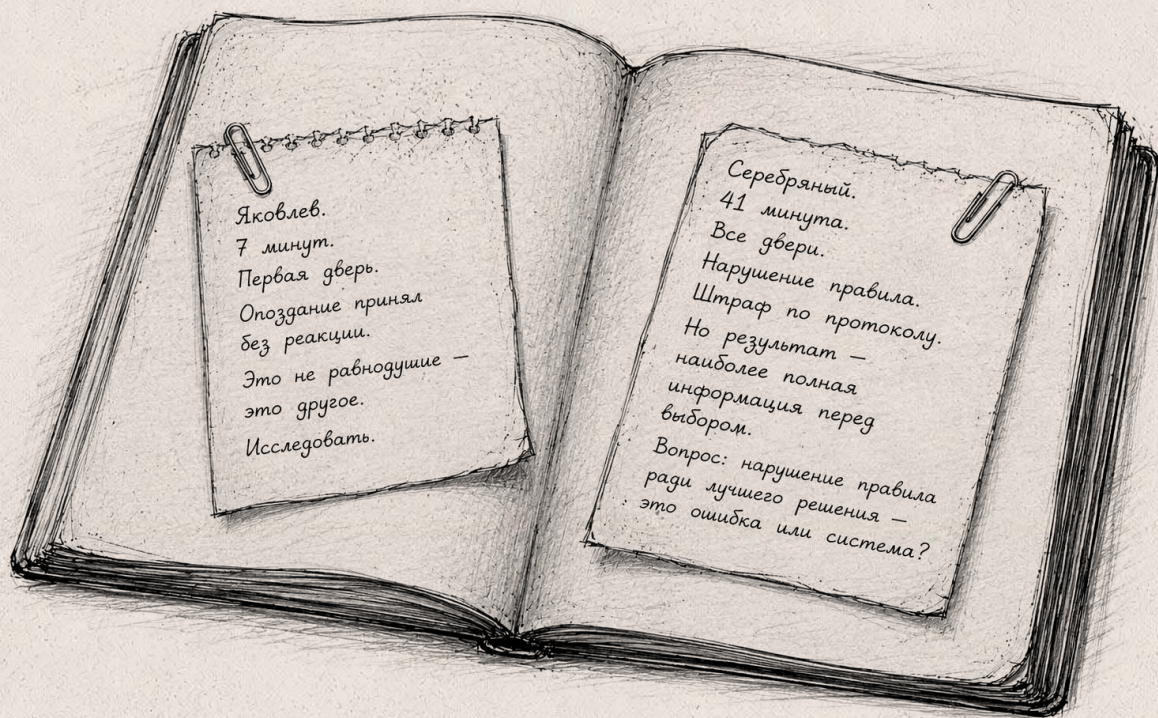 Яковлев.
7 минут.
Первая дверь.
Опоздание принял
без реакции.
Это не равнодушие —
это другое.
Исследовать.
Серебряный.
41 минута.
Все двери.
Нарушение правила.
Штраф по протоколу.
Но результат —
наиболее полная
информация перед
выбором.
Вопрос: нарушение правила
ради лучшего решения —
это ошибка или система?